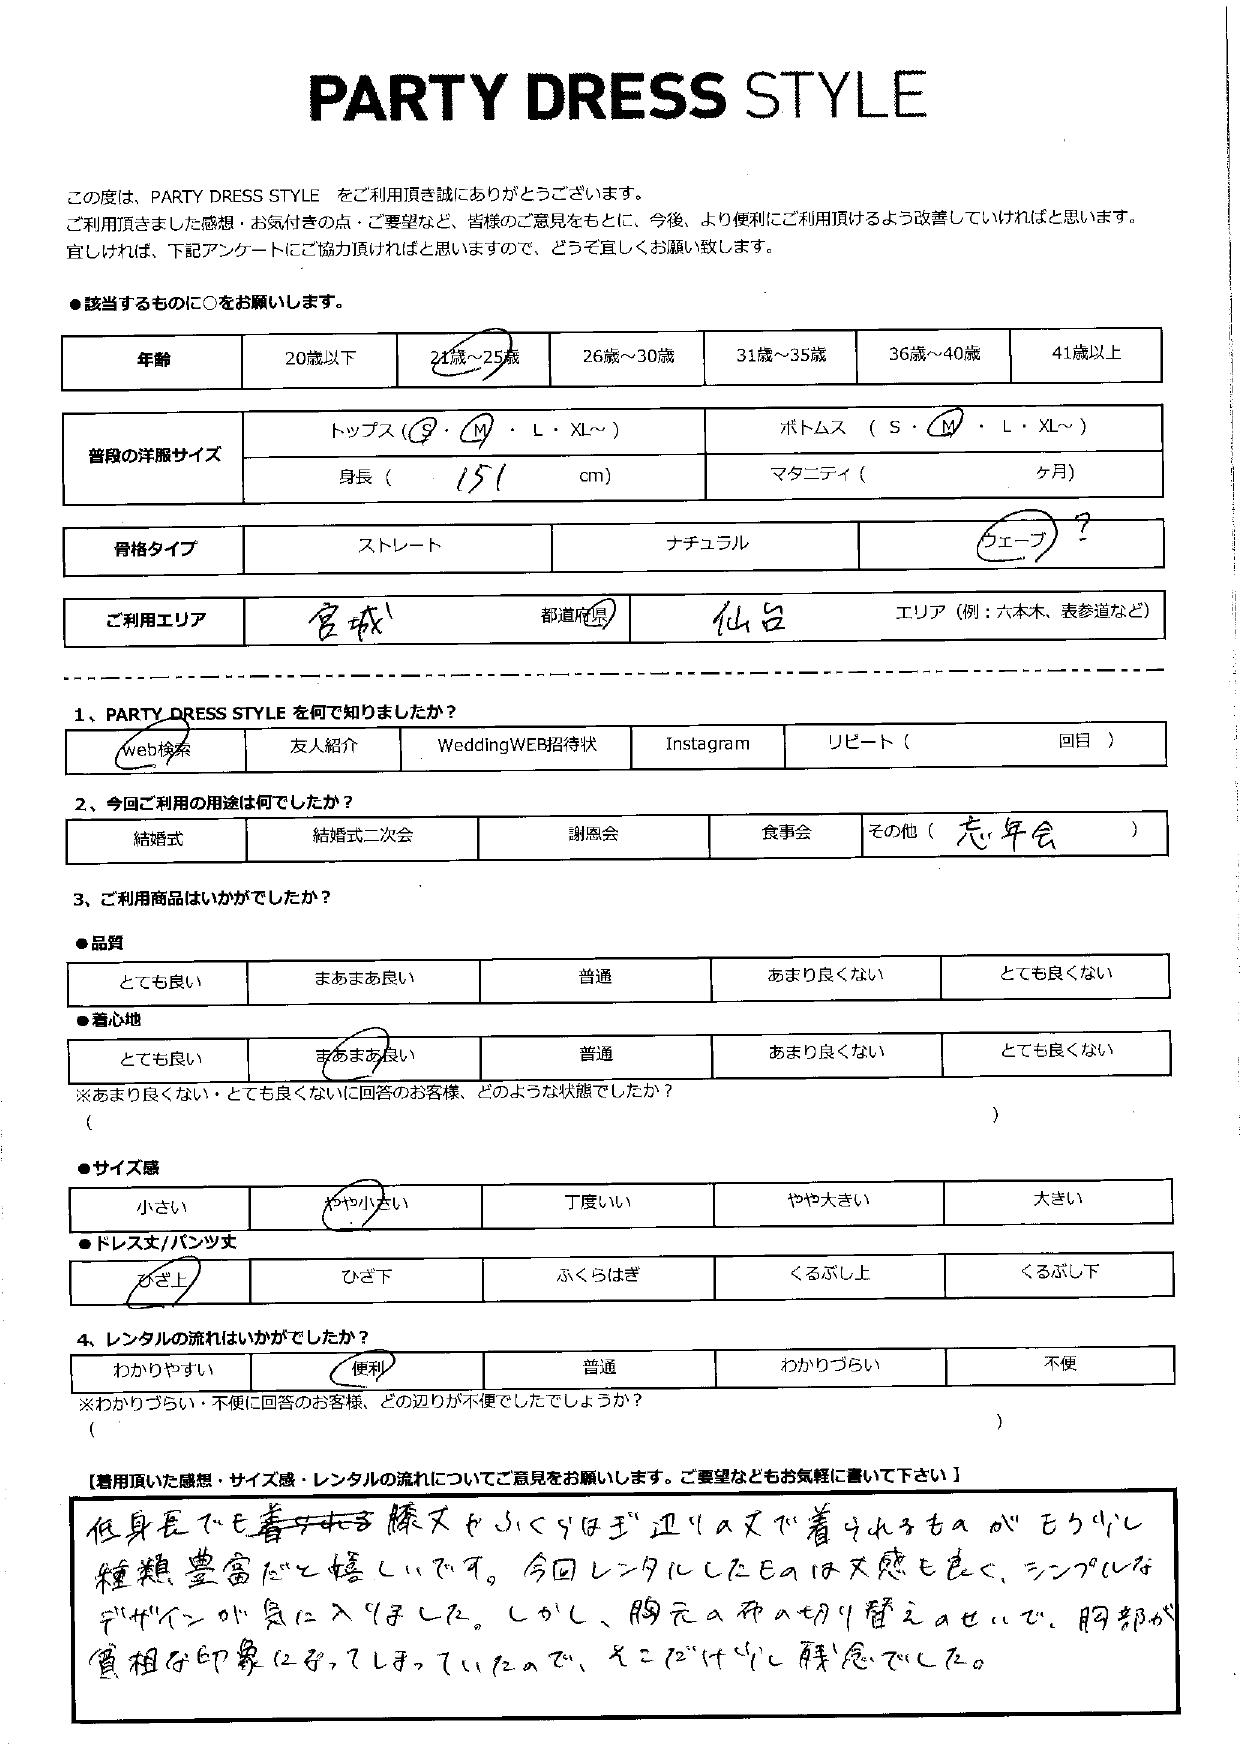 PARTY DRESS STYLE
この度は、PARTY DRESS STYLE をご利用頂き誠にありがとうございます。
ご利用頂きました感想・お気付きの点・ご要望など、皆様のご意見をもとに、今後、より便利にご利用頂けるよう改善していければと思います。
宜しければ、下記アンケートにご協力頂ければと思いますので、どうぞ宜しくお願い致します。
●該当するものに○をお願いします。
年齢 20歳以下 21歳～25歳 26歳～30歳 31歳～35歳 36歳～40歳 41歳以上
普段の洋服サイズ トップス (S・M ・ L・ XL～ ) ボトムス ( S・M ・ L・ XL～ )
身長 ( 151 cm) マタニティ ( ヶ月)
骨格タイプ ストレート ナチュラル ウェーブ ?
ご利用エリア 宮城 都道府県 仙台 エリア (例：六本木、表参道など)
1、PARTY DRESS STYLE を何で知りましたか？
web検索 友人紹介 WeddingWEB招待状 Instagram リピート ( 回目 )
2、今回ご利用の用途は何でしたか？
結婚式 結婚式二次会 謝恩会 食事会 その他 ( 忘年会 )
3、ご利用商品はいかがでしたか？
●品質
とても良い まあまあ良い 普通 あまり良くない とても良くない
●着心地
とても良い まあまあ良い 普通 あまり良くない とても良くない
※あまり良くない・とても良くないに回答のお客様、どのような状態でしたか？
( )
●サイズ感
小さい やや小さい 丁度いい やや大きい 大きい
●ドレス丈/パンツ丈
ひざ上 ひざ下 ふくらはぎ くるぶし上 くるぶし下
4、レンタルの流れはいかがでしたか？
わかりやすい 便利 普通 わかりづらい 不便
※わかりづらい・不便に回答のお客様、どの辺りが不便でしたでしょうか？
( )
【着用頂いた感想・サイズ感・レンタルの流れについてご意見をお願いします。ご要望などもお気軽に書いて下さい】
低身長でも着られる膝丈やふくらはぎ辺りの丈で着られるものがもう少し
種類豊富だと嬉しいです。今回レンタルしたものは丈感も良く、シンプルな
デザインが気に入りました。しかし、胸元の布の切り替えのせいで、胸部が
貧相な印象になってしまっていたので、そこだけ少し残念でした。